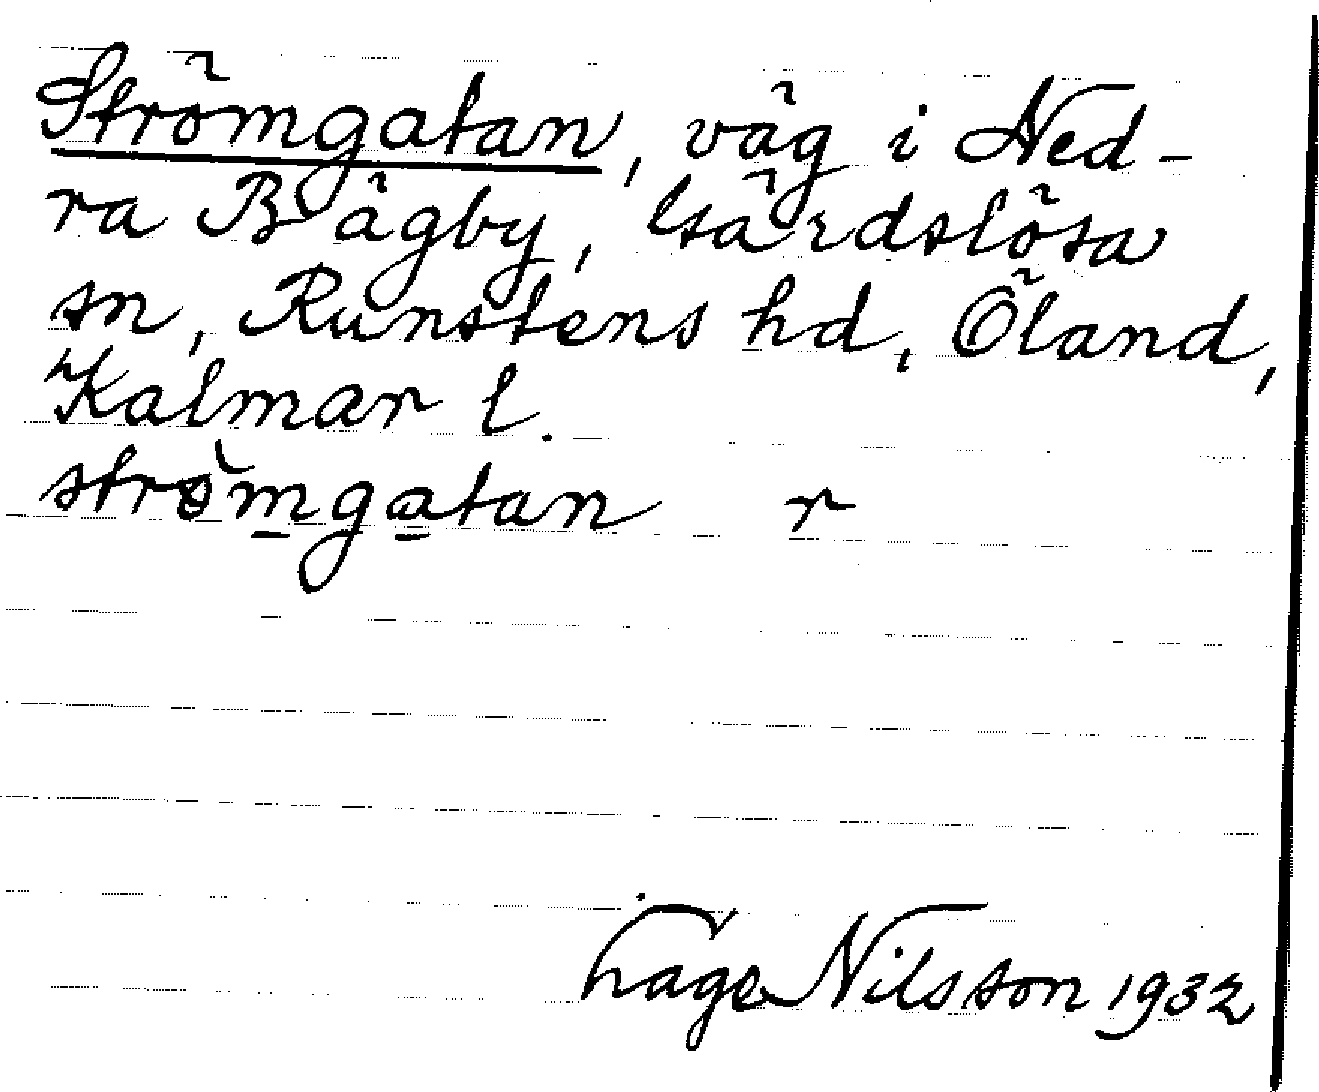 Strömgatan, väg i Ned-
ra Bägby, Gärdslösa
sn, Runstens hd, Öland,
Kalmar l.
strömgatan r
Nilsson 1932